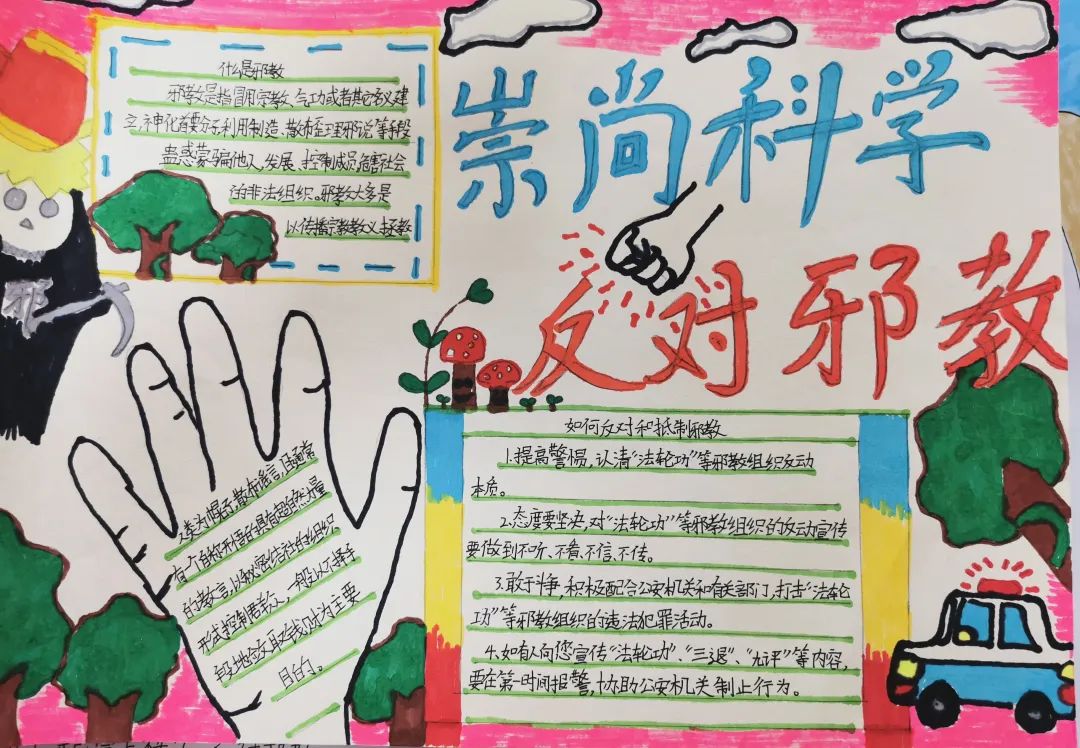 崇尚科学
反对邪教
什么是邪教
邪教是指冒用宗教、气功或者其它名义建
立,神化首要分子利用制造、散布歪理邪说等手段
蛊惑蒙骗他人,发展、控制成员,危害社会
的非法组织。邪教大多是
以传播宗教教义、拯救
人类为幌子,散布谣言,且通常
有一个自称开悟的具有超自然力量
的教主,以秘密结社的组织
形式控制信众,一般以不择手
段地敛取钱财为主要
目的。
如何反对和抵制邪教
1.提高警惕,认清“法轮功”等邪教组织反动
本质。
2.态度要坚决,对“法轮功”等邪教组织的反动宣传
要做到不听、不看、不信、不传。
3.敢于斗争,积极配合公安机关和有关部门,打击“法轮
功”等邪教组织的违法犯罪活动。
4.如有人向您宣传“法轮功”、“三退”、“九评”等内容,
要在第一时间报警,协助公安机关制止行为。